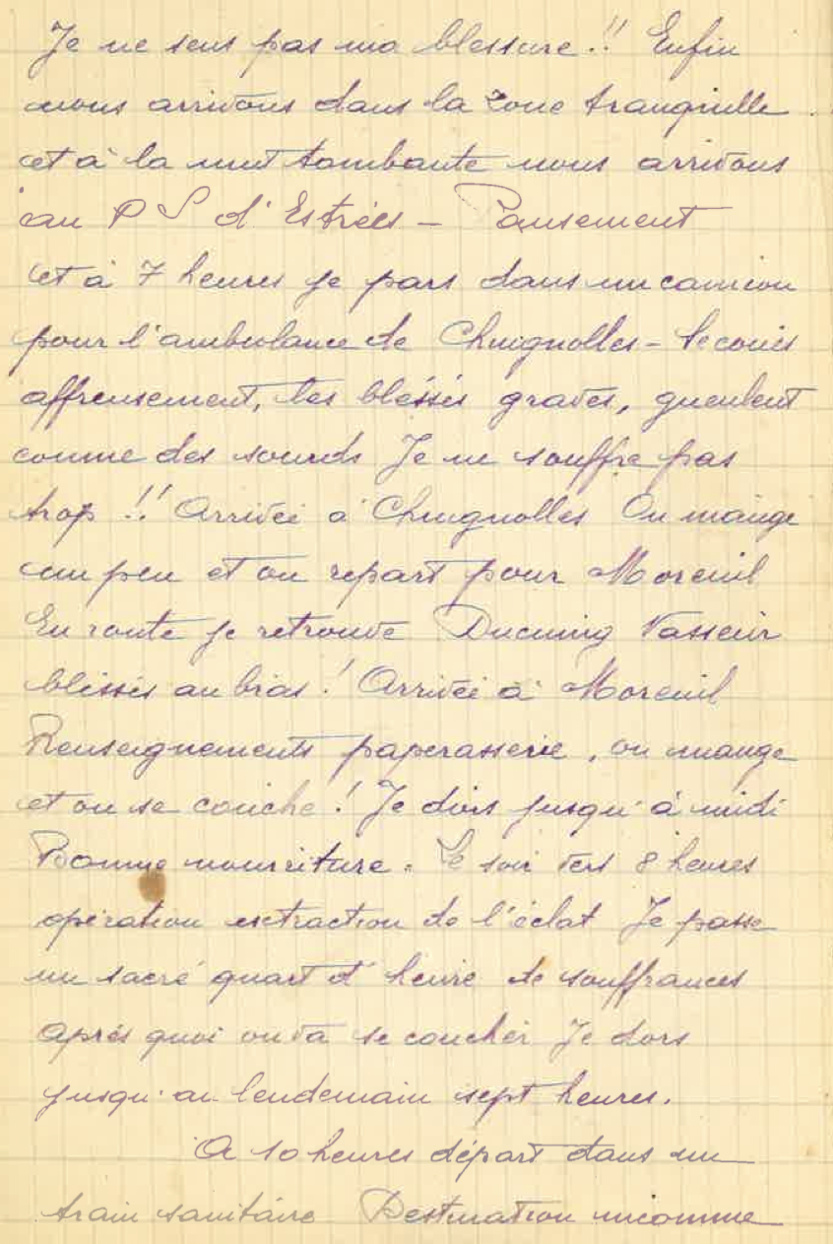 Je ne sens pas ma blessure !! Enfin
nous arrivons dans la zone tranquille
et à la nuit tombante nous arrivons
au P S d'Estrées - Pansement
et à 7 heures je pars dans un camion
pour l'ambulance de Chuignolles - Secoués
affreusement, les blessés graves, gueulent
comme des sourds Je ne souffre pas
trop !! Arrivée à Chuignolles On mange
un peu et on repart pour Moreuil
En route je retrouve Ducuing Vasseur
blessés au bras ! Arrivée à Moreuil
Renseignements paperasserie, on mange
et on se couche ! Je dors jusqu'à midi
Bonne nourriture. Le soir vers 8 heures
opération extraction de l'éclat Je passe
un sacré quart d'heure de souffrances
après quoi on va se coucher Je dors
jusqu'au lendemain sept heures.
A 10 heures départ dans un
train sanitaire Destination inconnue